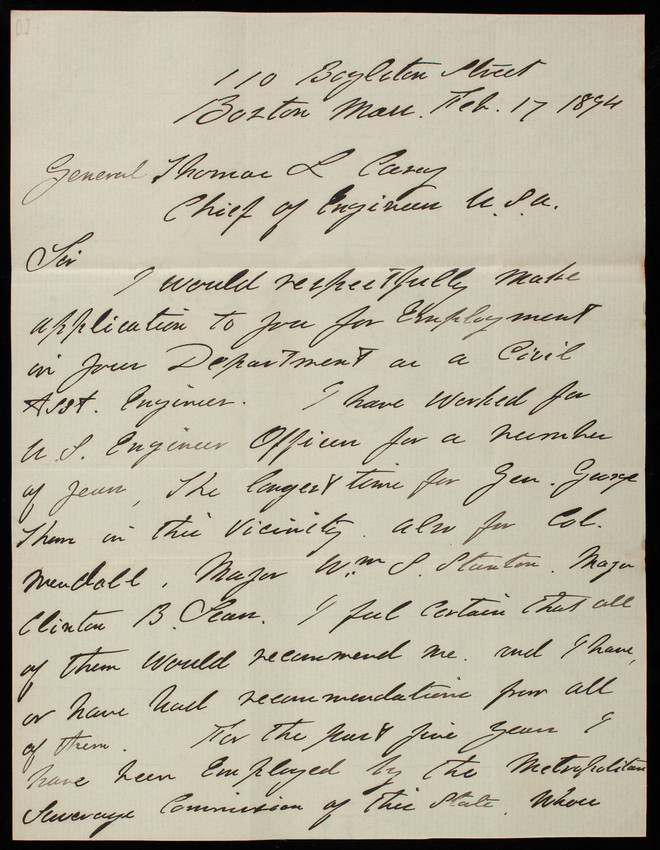 110 Boylston Street
Boston Mass. Feb. 17 1894
General Thomas L Casey
Chief of Engineers U.S.A.
Sir
I would respectfully make
application to you for Employment
in your Department as a Civil
Asst. Engineer. I have worked for
U.S. Engineer Officers for a number
of years, the longest time for Gen. George
Thom in this Vicinity. also for Col.
Mendell, Major Wm S. Stanton. Major
Clinton B. Sears. I feel certain that all
of them would recommend me. and I have,
or have had recommendations from all
of them. For the past five years I
have been Employed by the Metropolitan
Sewerage Commission of this State. Whose